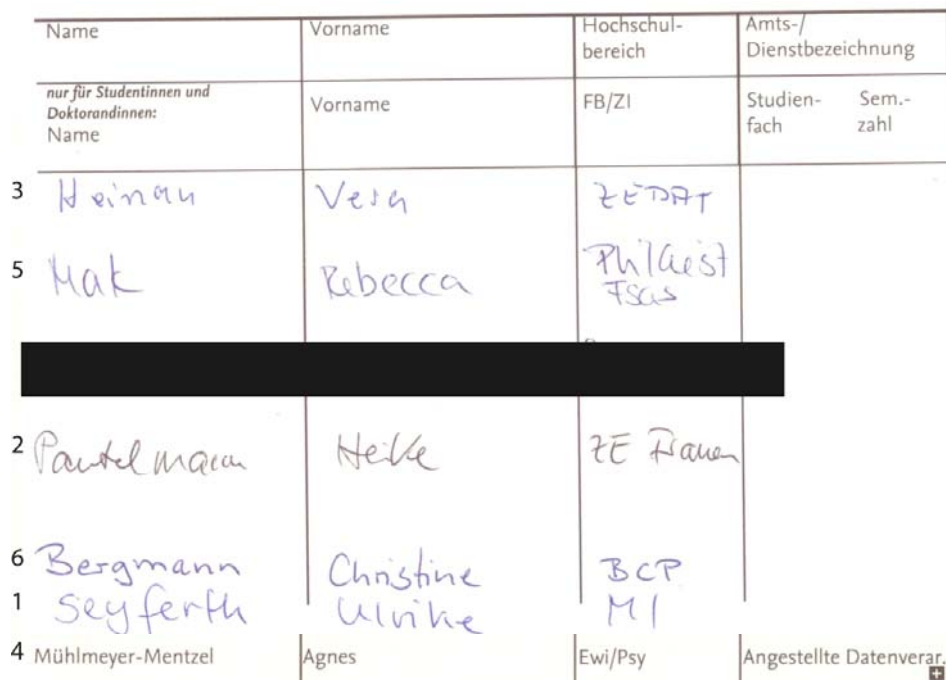 Name Vorname Hochschul- Amts-/
bereich Dienstbezeichnung
nur für Studentinnen und
Doktorandinnen: Vorname FB/ZI Studien- Sem.-
Name fach zahl
3 Heinau Vera ZEDAT
5 Mak Rebecca PhilGeist
FSGS
2 Pantelmann Heike ZE Frauen
6 Bergmann Christine BCP
1 Seyferth Ulrike MI
4 Mühlmeyer-Mentzel Agnes Ewi/Psy Angestellte Datenverar.